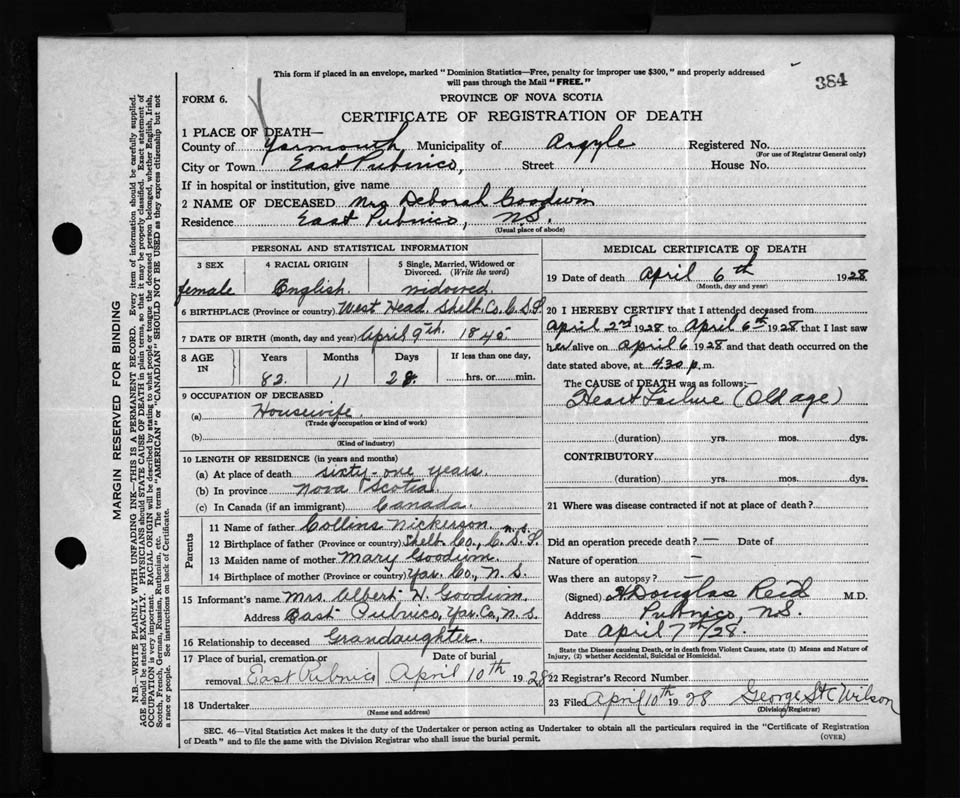 This form if placed in an envelope, marked "Dominion Statistics—Free, penalty for improper use $300," and properly addressed
will pass through the Mail "FREE."
384
FORM 6.
PROVINCE OF NOVA SCOTIA
CERTIFICATE OF REGISTRATION OF DEATH
1 PLACE OF DEATH—
County of Yarmouth, Municipality of Argyle Registered No.
(For use of Registrar General only)
City or Town East Pubnico, Street House No.
If in hospital or institution, give name
2 NAME OF DECEASED Mrs Deborah Goodwin
Residence East Pubnico, N.S.
(Usual place of abode)
PERSONAL AND STATISTICAL INFORMATION
3 SEX 4 RACIAL ORIGIN 5 Single, Married, Widowed or
Divorced. (Write the word)
female English. widowed.
6 BIRTHPLACE (Province or country) West Head. Shelb. Co. C.S.I.
7 DATE OF BIRTH (month, day and year) April 9th. 1845
8 AGE IN Years Months Days If less than one day,
82. 11 28. hrs. or min.
9 OCCUPATION OF DECEASED
(a) Housewife.
(Trade or occupation or kind of work)
(b)
(Kind of industry)
10 LENGTH OF RESIDENCE (in years and months)
(a) At place of death sixty-one years.
(b) In province Nova Scotia
(c) In Canada (if an immigrant) Canada.
Parents
11 Name of father Collins Nickerson
12 Birthplace of father (Province or country) Shelb. Co., C.S.I. N.S.
13 Maiden name of mother Mary Goodwin.
14 Birthplace of mother (Province or country) Yar. Co., N.S.
15 Informant's name Mrs. Albert W. Goodwin
Address East Pubnico, Yar. Co, N.S.
16 Relationship to deceased Grandaughter.
17 Place of burial, cremation or Date of burial
removal East Pubnico April 10th 1928
18 Undertaker
(Name and address)
MEDICAL CERTIFICATE OF DEATH
19 Date of death April 6th 1928
(Month, day and year)
20 I HEREBY CERTIFY that I attended deceased from
April 2nd 1928 to April 6th 1928 that I last saw
her alive on April 6 1928 and that death occurred on the
date stated above, at 4.30 p. m.
The CAUSE of DEATH was as follows:—
Heart Failure (Old age)
(duration) yrs. mos. dys.
CONTRIBUTORY
(duration) yrs. mos. dys.
21 Where was disease contracted if not at place of death?
Did an operation precede death? — Date of
Nature of operation —
Was there an autopsy? —
(Signed) H Douglas Reid M.D.
Address Pubnico, N.S.
Date April 7th/28.
State the Disease causing Death, or in death from Violent Causes, state (1) Means and Nature of
Injury, (2) whether Accidental, Suicidal or Homicidal.
22 Registrar's Record Number
23 Filed April 10th 1928 George St C Wilson
(Division Registrar)
SEC. 46—Vital Statistics Act makes it the duty of the Undertaker or person acting as Undertaker to obtain all the particulars required in the "Certificate of Registration
of Death" and to file the same with the Division Registrar who shall issue the burial permit.
(OVER)
MARGIN RESERVED FOR BINDING
N.B.—WRITE PLAINLY WITH UNFADING INK—THIS IS A PERMANENT RECORD. Every item of information should be carefully supplied.
AGE should be stated EXACTLY. PHYSICIANS should STATE CAUSE OF DEATH in plain terms, so that it may be properly classified. Exact statement of
OCCUPATION is very important. RACIAL ORIGIN will be described by stating to what people or tongue the deceased person belonged, whether English, Irish,
Scotch, French, German, Russian, Ruthenian, etc. The terms "AMERICAN" or "CANADIAN" SHOULD NOT BE USED as they express citizenship but not
a race or people. See instructions on back of Certificate.